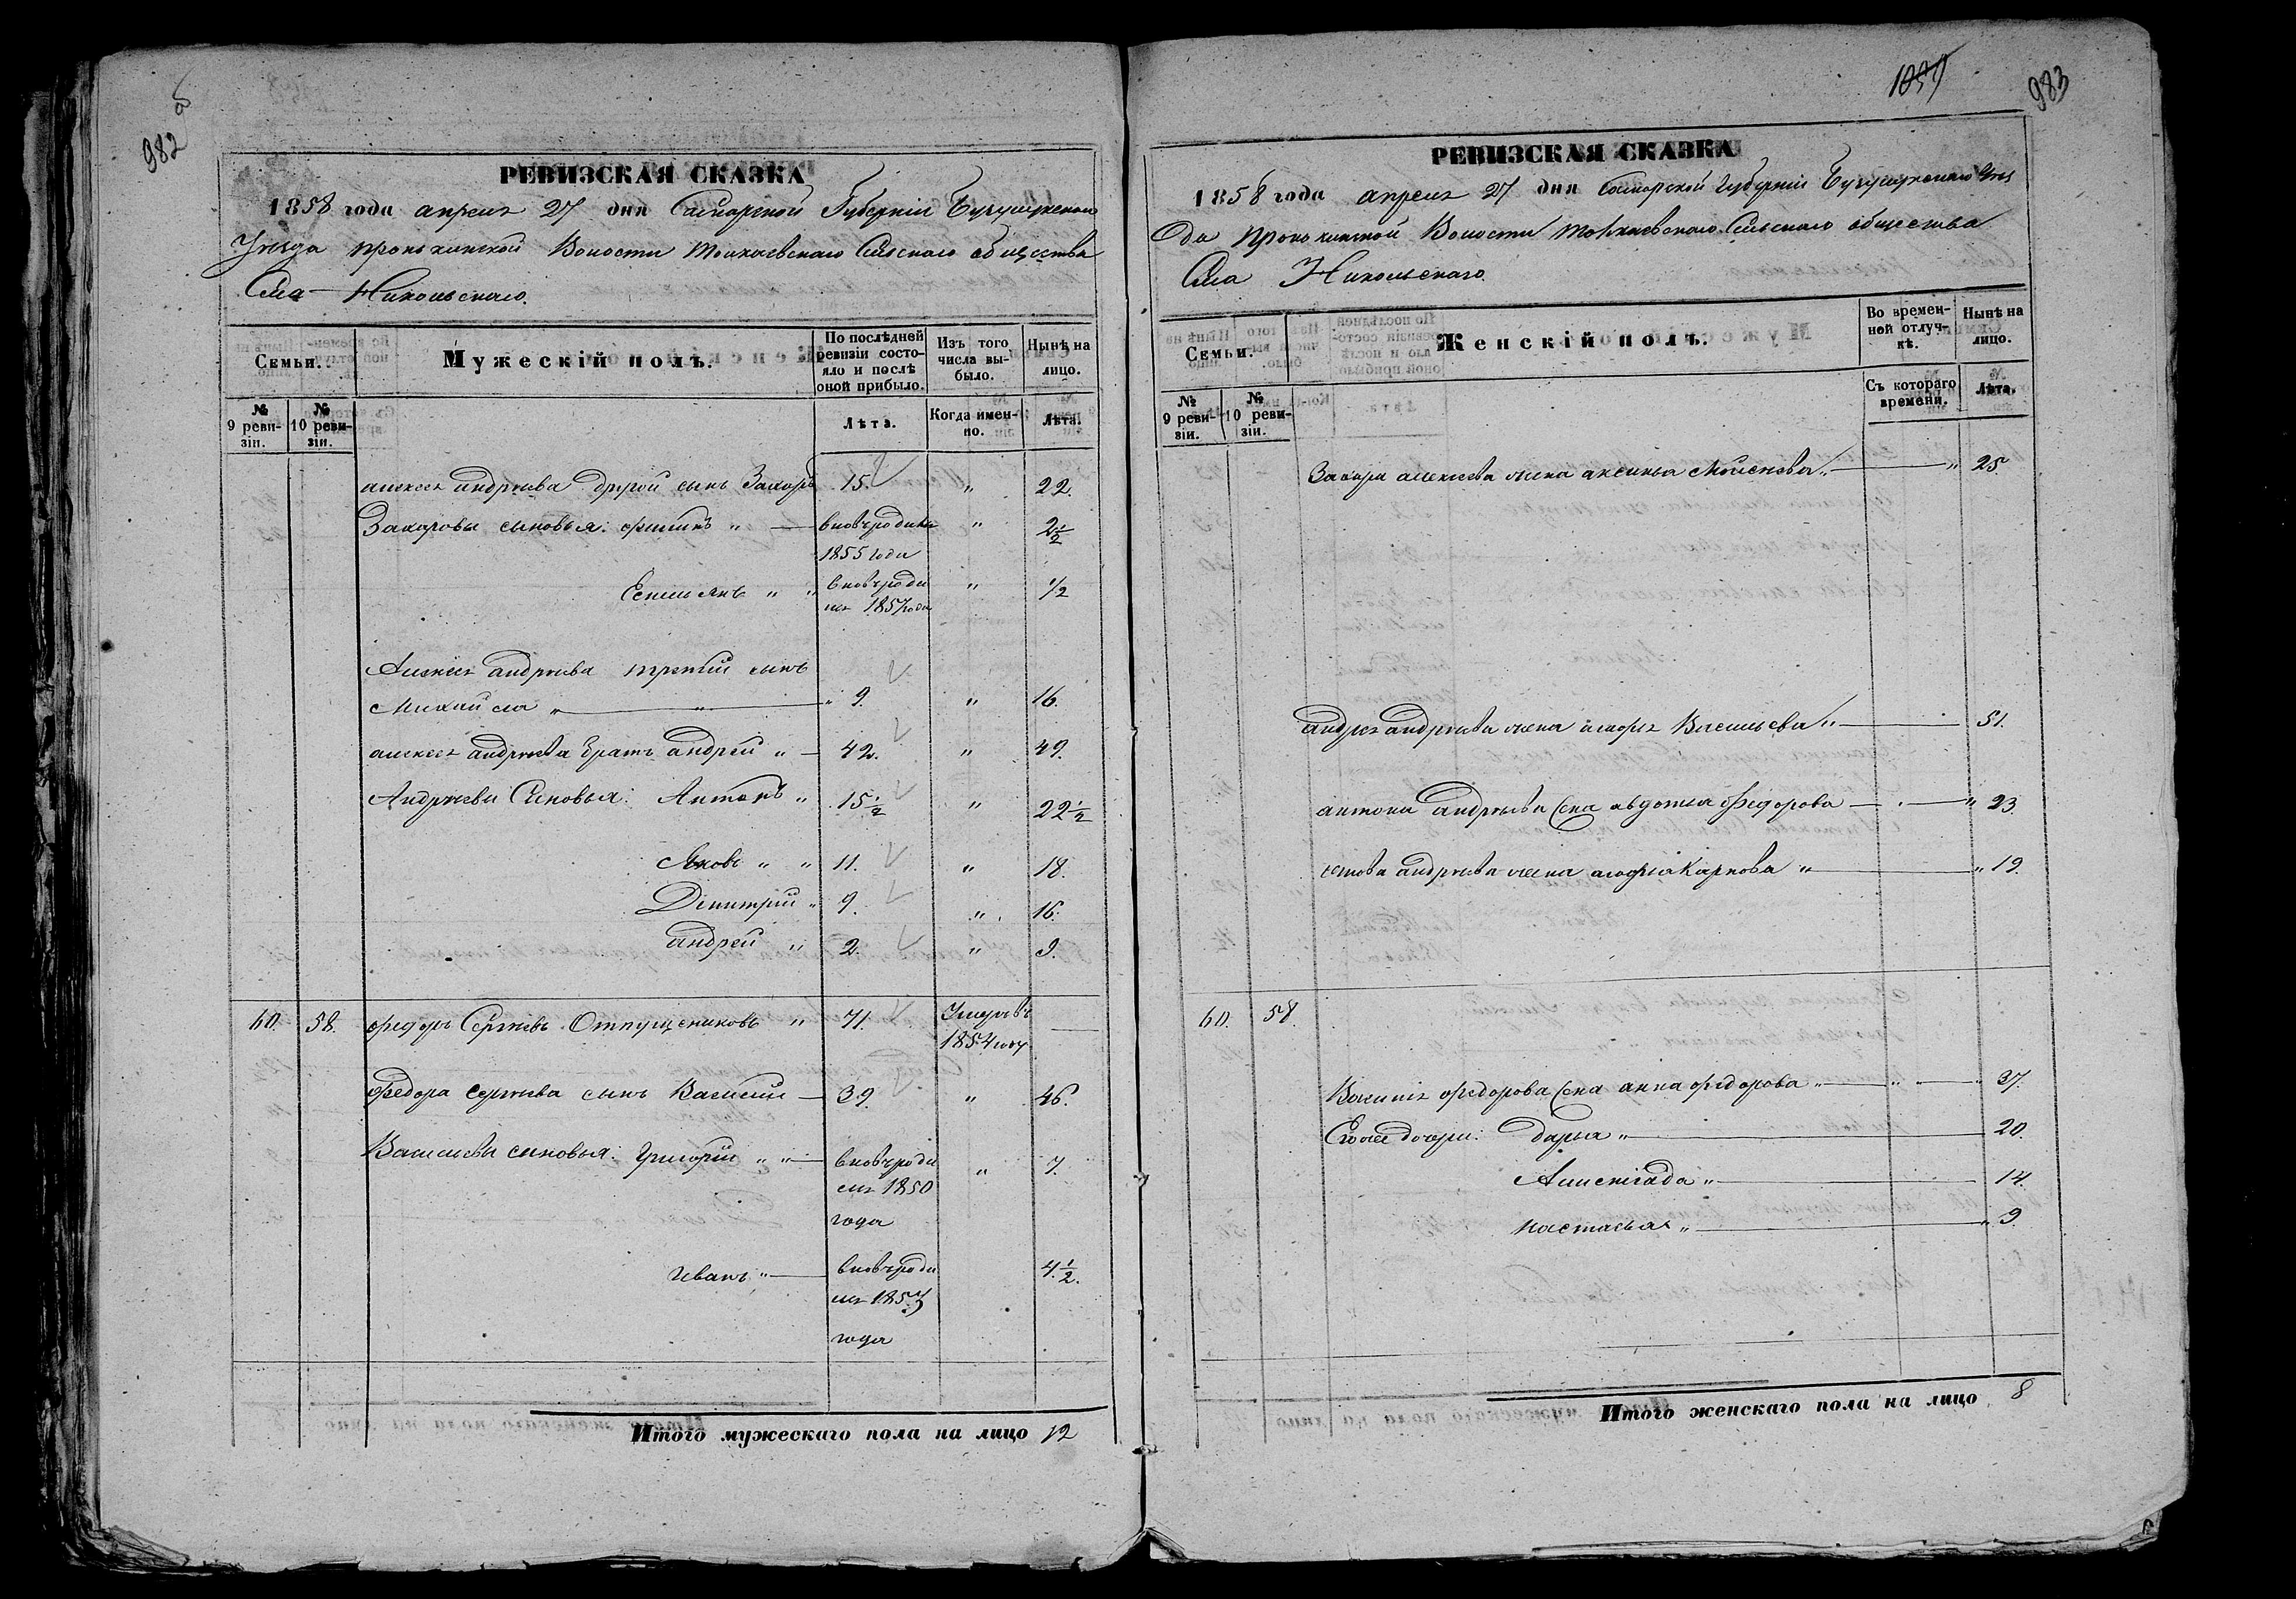 982
об
РЕВИЗСКАЯ СКАЗКА
1858 года апреля 27 дня Самарской Губерніи Бугурусланского
Уезда Пронькинской Волости Токаевскаго Сельскаго общества
Села Никольскаго.
Семьи.
Мужескій полъ.
По послѣдней ревизіи состояло и послѣ оной прибыло.
Изъ того числа выбыло.
Нынѣ на лицо.
№ 9 ревизіи.
№ 10 ревизіи.
Лѣта.
Когда именно.
Лѣта.
алексея андреева другой сынъ Захаръ 15. " 22.
Захаровы сыновья: филипъ " вновьродился 1855 года " 2 1/2
Емельянъ " " вновьроди лся 1857 года " 1/2
Алексея андреева третий сынъ
Михайла " " 9. " 16.
алексея андреева братъ андрей " 42. " 49.
Андреевы Сыновья: Антонъ " 15 1/2 " 22 1/2
Яковъ " " 11. " 18.
Дмитрий " 9. " 16.
андрей " 2. " 9.
60. 58. федоръ Сергеевъ Отпущениковъ " 71. Умеръ въ 1854 году —
Федора сергеева сынъ Василий 39. " 46.
Васильевы сыновья: Григорий " " вновьроди лся 1850 года " 7.
Иванъ " вновьроди лся 1853 года 4 1/2.
Итого мужескаго пола на лицо 12
983
РЕВИЗСКАЯ СКАЗКА
1858 года апреля 27 дня Самарской Губерніи Бугурусланского Уез
да Пронькинской Волости Токаевскаго Сельскаго общества
Села Никольскаго.
Семьи.
Женскій полъ.
Во временной отлучкѣ.
Нынѣ на лицо.
№ 9 ревизіи.
№ 10 ревизіи.
Съ котораго времени.
Лѣта.
Захара алексеева жена аксинья Моисеева " " 25
андрея андреева жена Васильева " 51.
антона андреева жена авдотья Федорова " 23.
якова андреева жена Карпова " " 19.
60. 58.
Василия федорова жена анна федорова " " " 37.
дочери: дарья " 20.
14.
настасья " " 9.
Итого женскаго пола на лицо 8